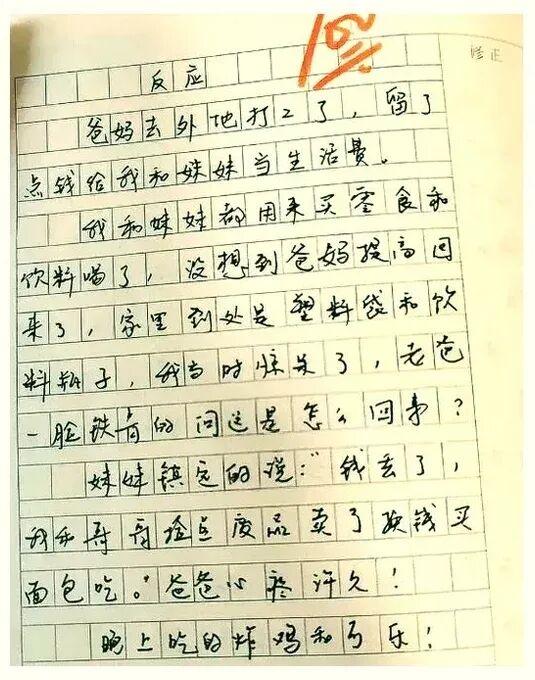 修正
反应
爸妈去外地打工了，留了
点钱给我和妹妹当生活费。
我和妹妹都用来买零食和
饮料喝了，没想到爸妈提高回
来了，家里到处是塑料袋和饮
料瓶子，我当时惊呆了，老爸
一脸铁青的问这是怎么回事？
妹妹镇定的说：“钱丢了，
我和哥哥捡点废品卖了换钱买
面包吃。”爸爸心疼许久！
晚上吃的炸鸡和可乐！